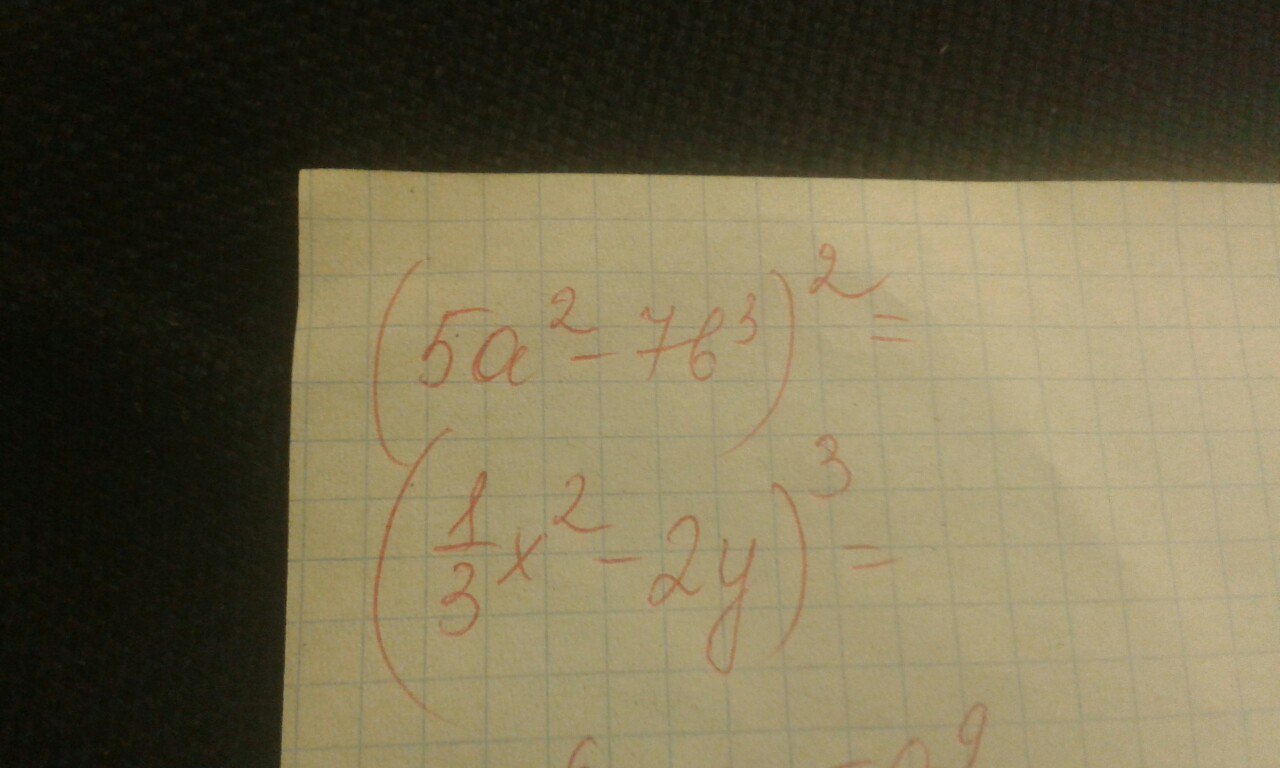 (5a² - 7b³)² =
(1/3 x² - 2y)³ =